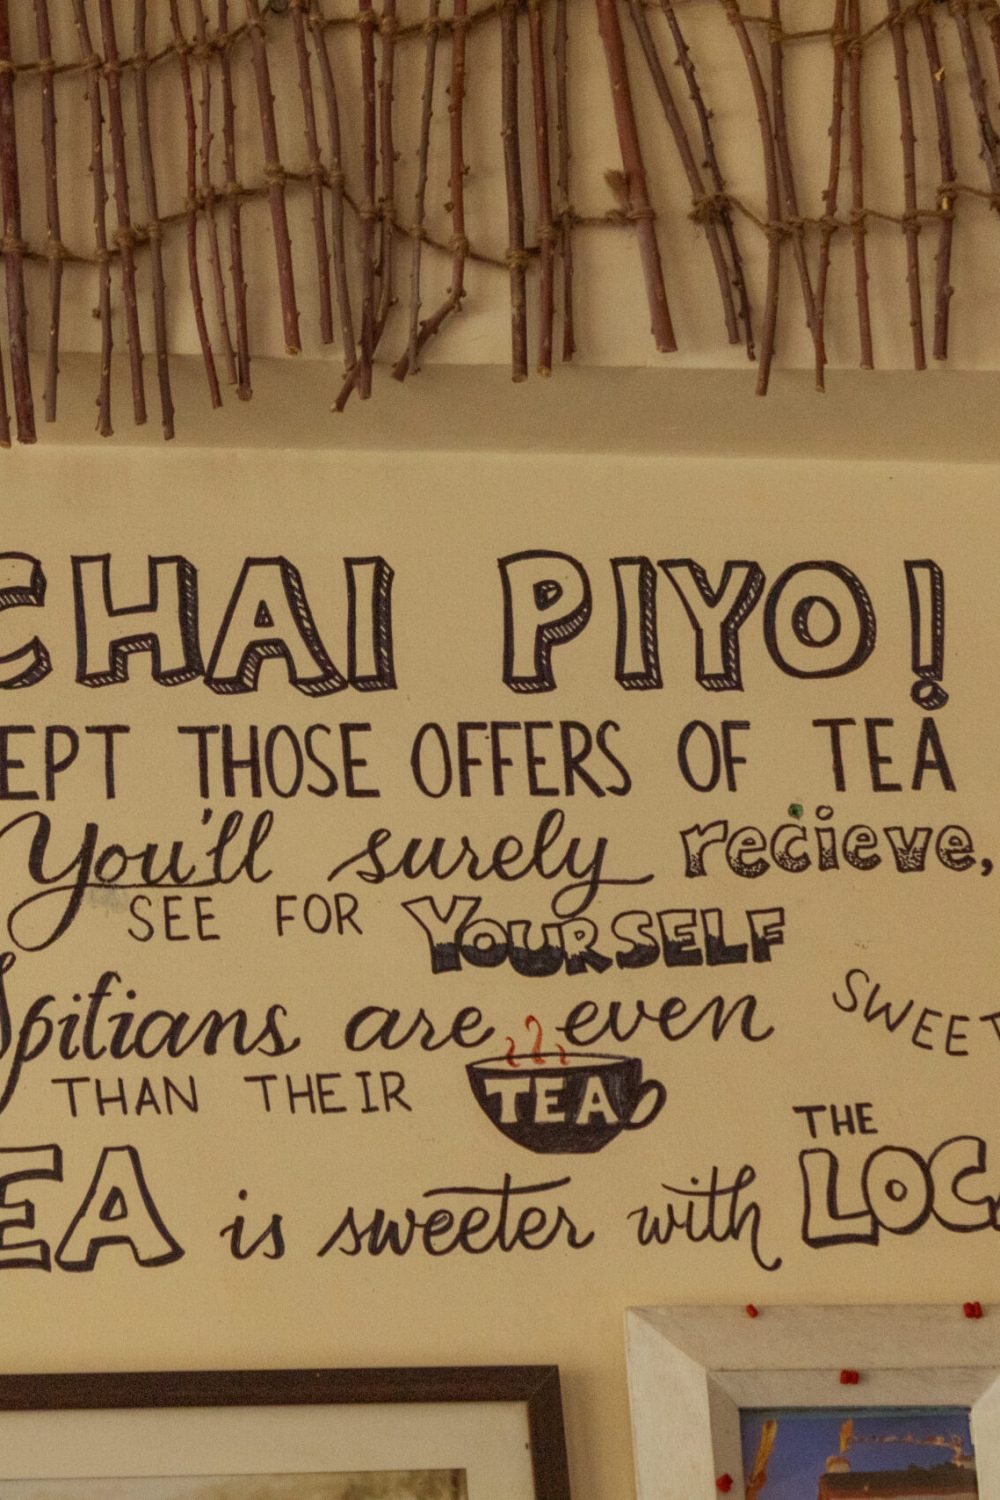 CHAI PIYO!
EPT THOSE OFFERS OF TEA
You'll surely recieve,
SEE FOR YOURSELF
Spitians are even SWEET
THAN THEIR TEA
EA is sweeter with THE LOCA